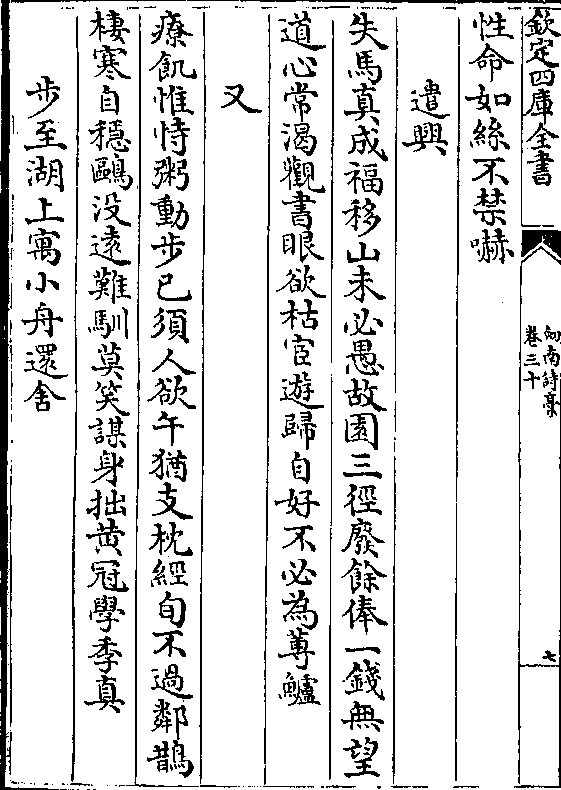 欽定四庫全書
劍南詩藳
卷三十
七
性命如絲不禁嚇
遣興
失馬真成福移山未必愚故園三徑廢餘俸一錢無望
道心常渴觀書眼欲枯宦遊歸自好不必為蓴鱸
又
療飢惟恃粥動步已須人欲午猶支枕經旬不過鄰鵲
棲寒自穩鷗没遠難馴莫笑謀身拙黄冠學季真
步至湖上寓小舟還舍